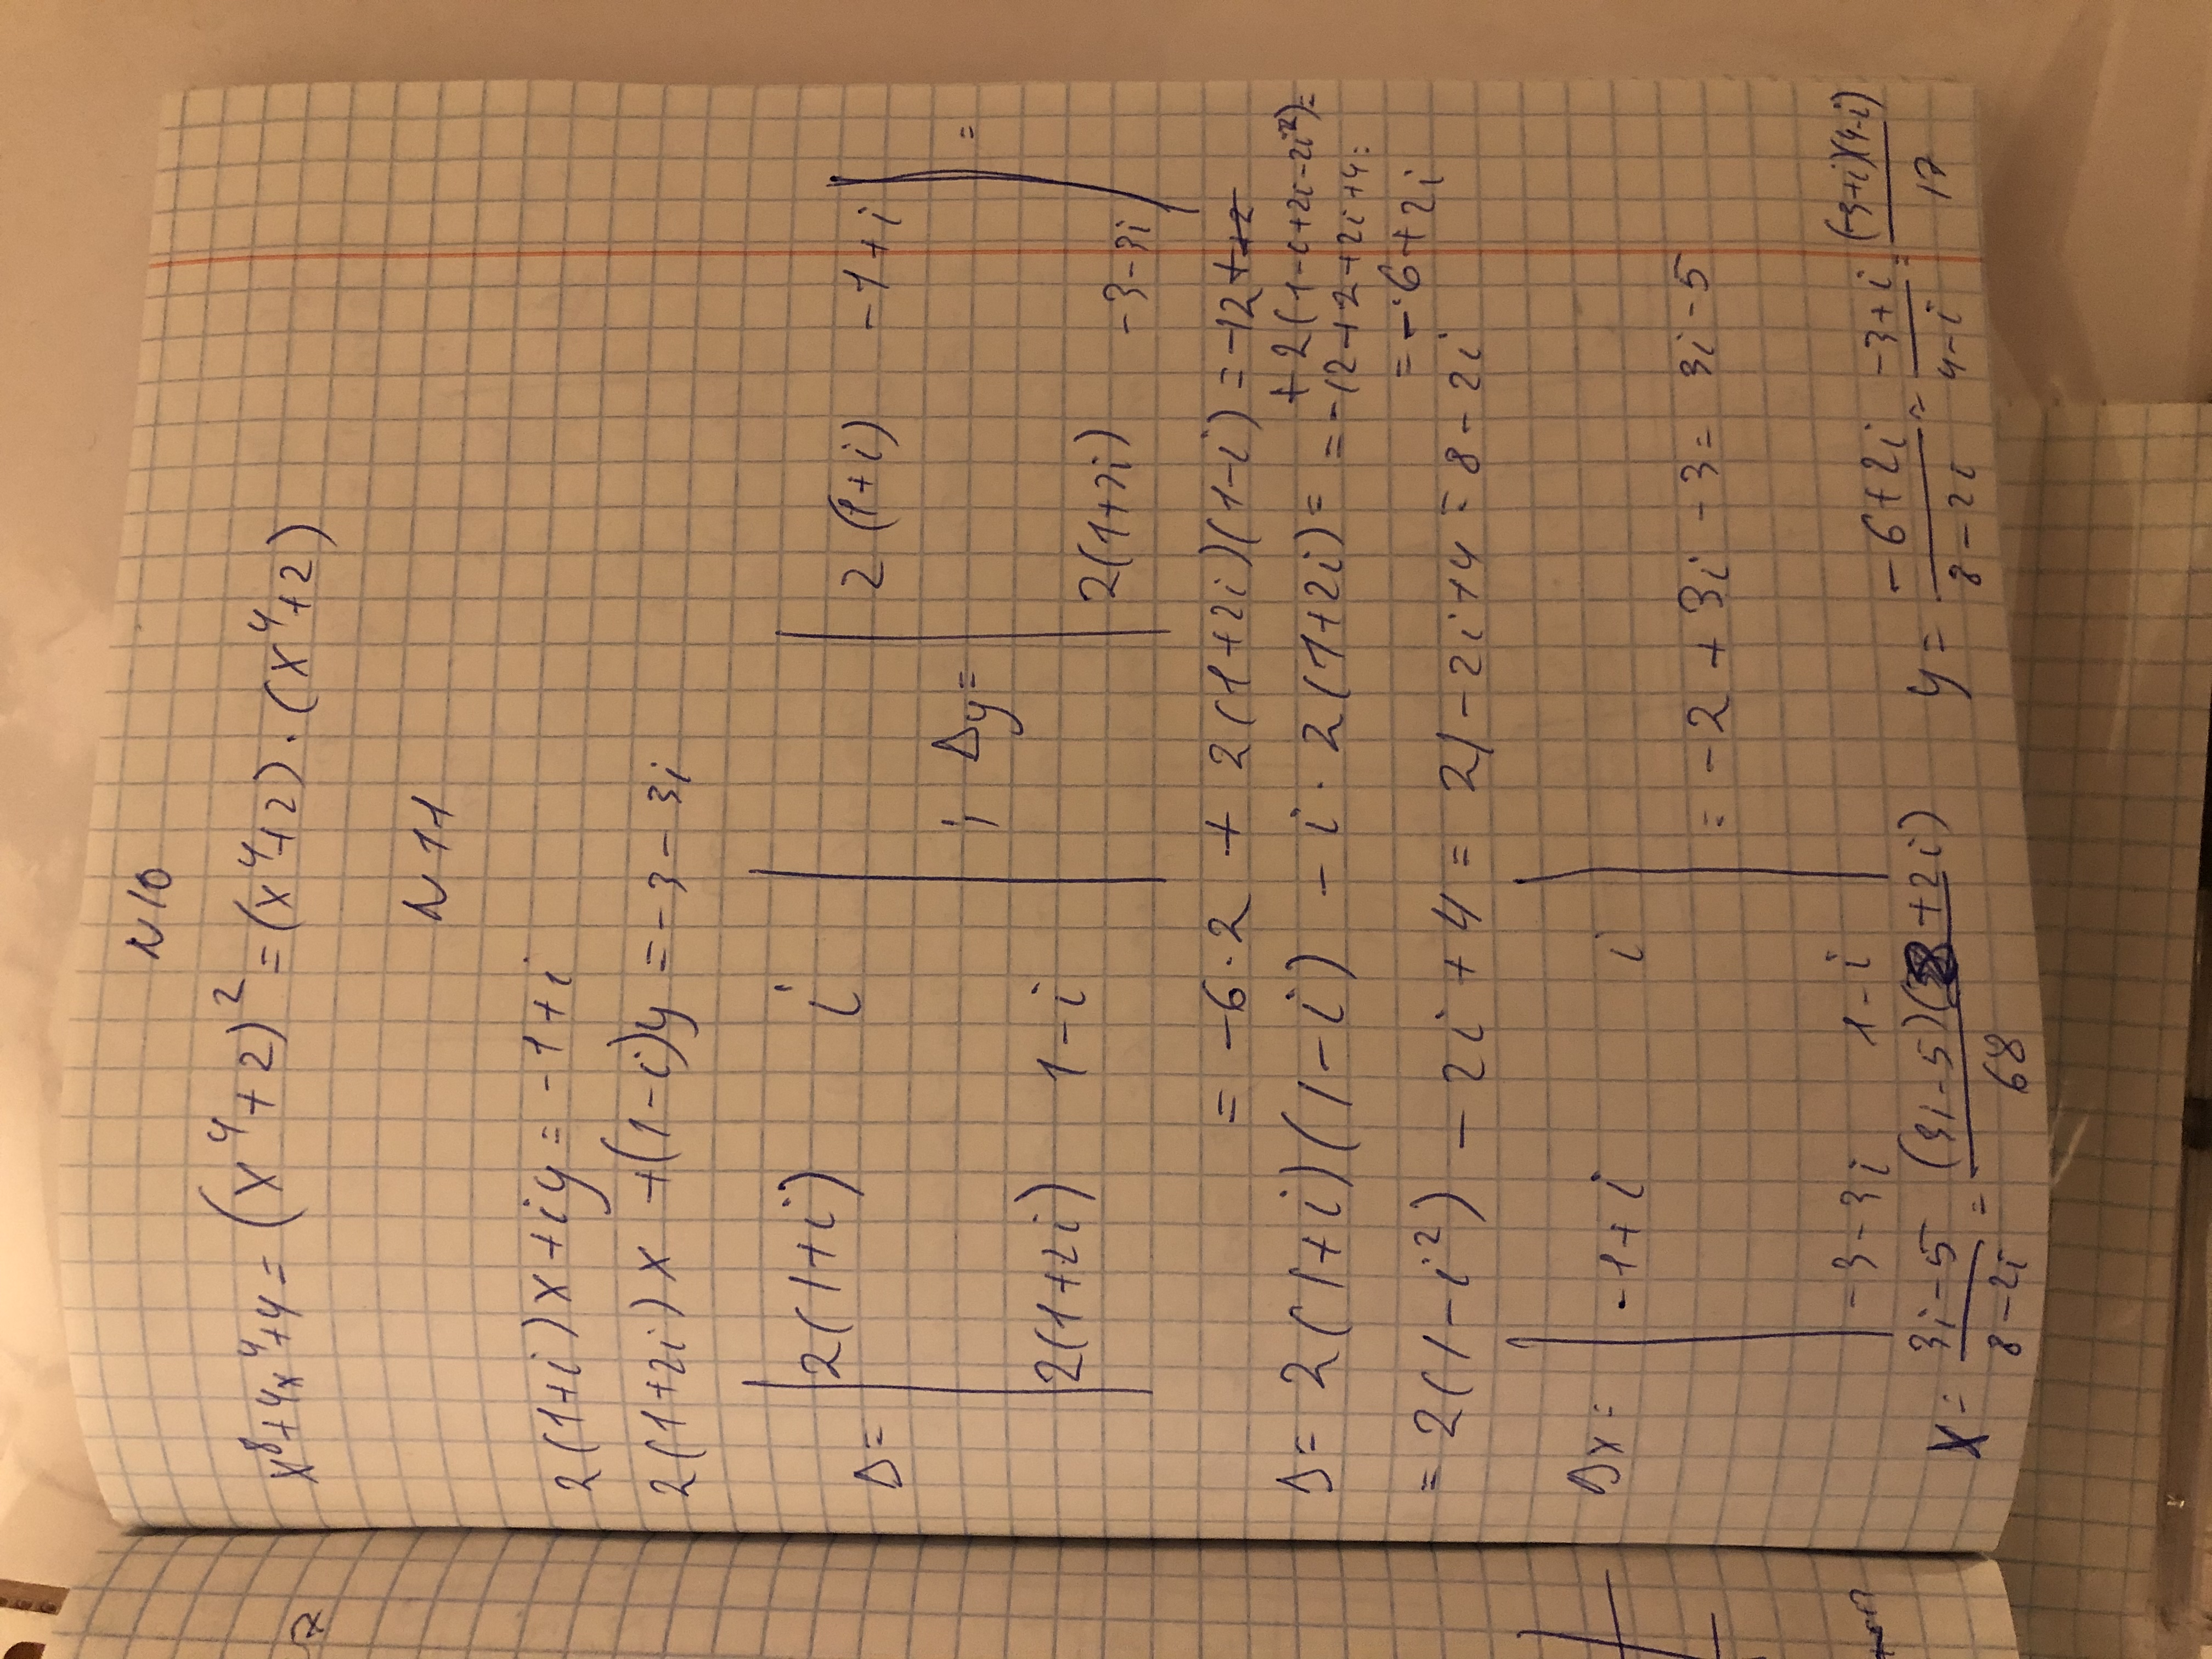 N10
x⁸+4x⁴+4 = (x⁴+2)² = (x⁴+2)·(x⁴+2)
N11
2(1+i)x+iy = -1+i
2(1+2i)x +(1-i)y = -3-3i
Δ= | 2(1+i) i | ; Δy= | 2(1+i) -1+i | =
| 2(1+2i) 1-i | | 2(1+2i) -3-3i |
= -6·2 + 2(1+2i)(1-i) = -12+
+2(1-i+2i-2i²)=
Δ= 2(1+i)(1-i) - i·2(1+2i) =
= -12+2+2i+4=
= -6+2i
= 2(1-i²) - 2i + 4 = 4-2i+4 = 8-2i
Δx= | -1+i i |
= -2 + 3i - 3 = 3i-5
| -3-3i 1-i |
x = (3i-5)/(8-2i) = (3i-5)(8+2i)/68 y = (-6+2i)/(8-2i) = (-3+i)/(4-i) = (-3+i)(4-i)/17